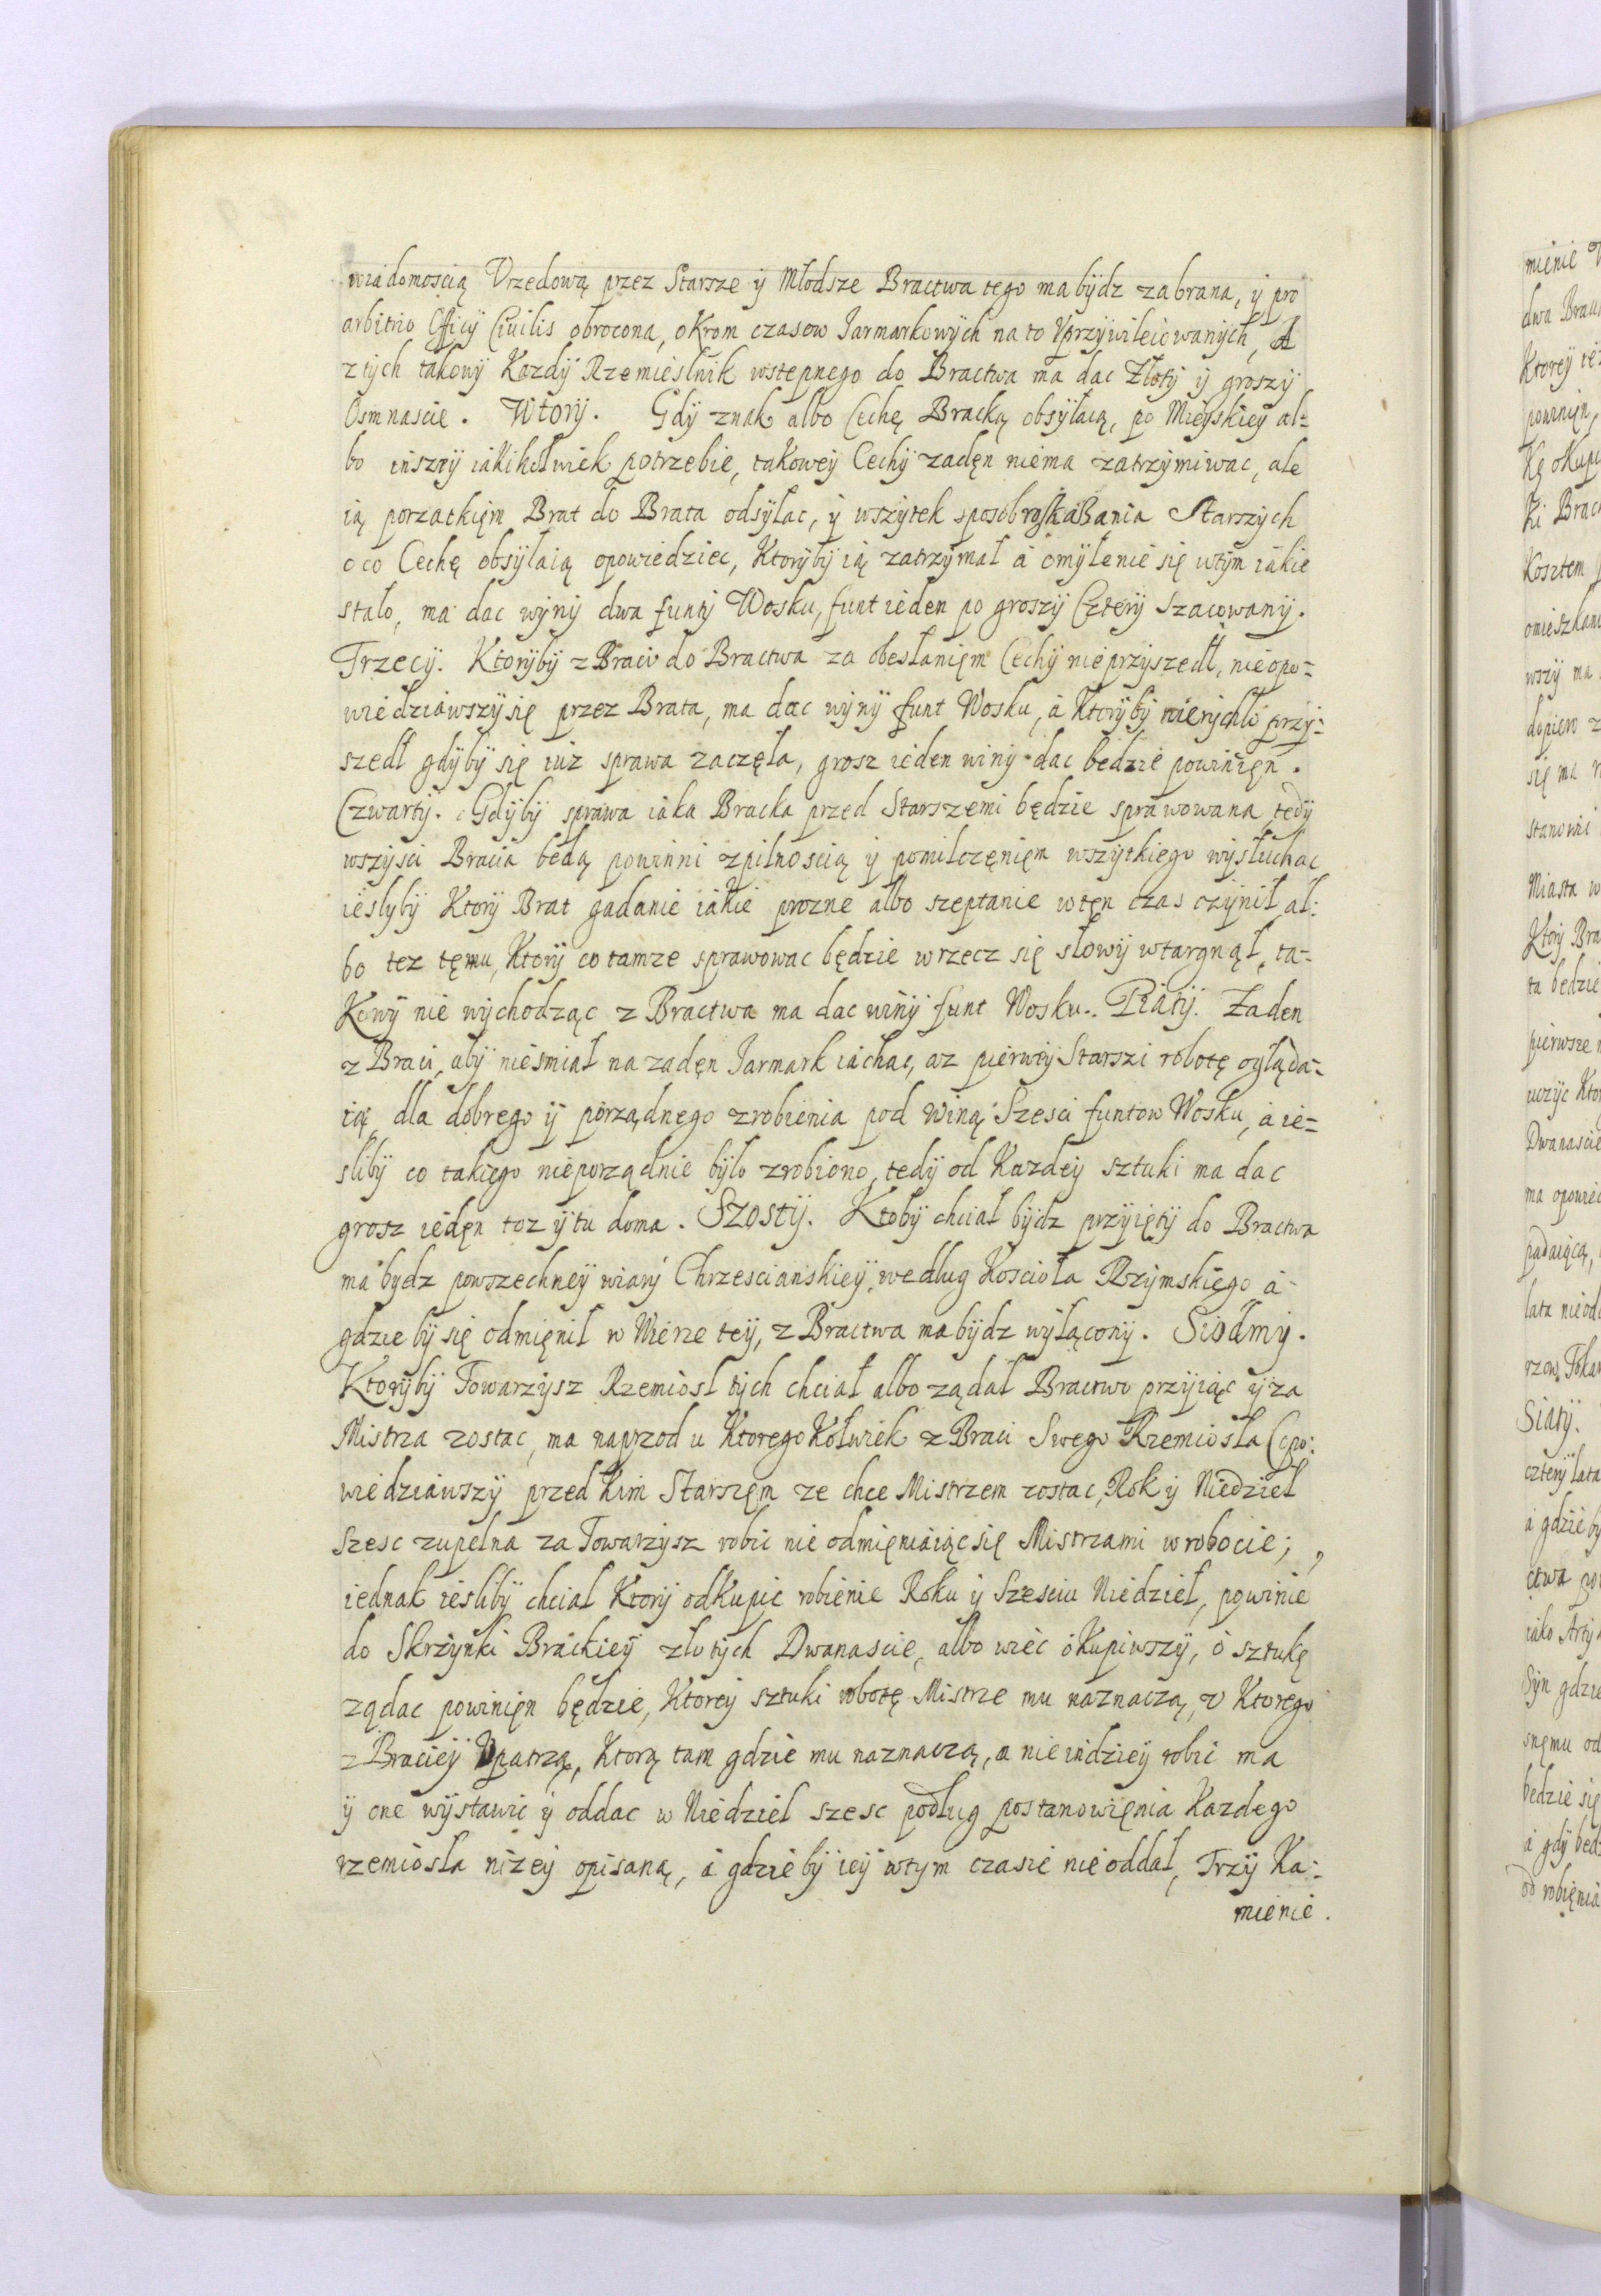 wiadomoscią Vrzedową przez Starsze ÿ Młodsze Bractwa tego ma bÿdz zabrana, ÿ pro
arbitrio Officÿ Ciuilis obrocona, okrom czasow Jarmarkowÿch na to Vprzÿwileiowanÿch, A
z tÿch takowÿ Kazdÿ Rzemieslnik wstepnego do Bractwa ma dac Złotÿ ÿ groszÿ
Osmnascie. Wtorÿ. Gdÿ znak albo Cechę Bracką obsÿłaią, po Mieÿskieÿ al=
bo inszeÿ iakikolwiek potrzebie, takoweÿ Cechÿ zadęn niema zatrzÿmiwac, ale
ią porzatkięm Brat do Brata odsÿłac, ÿ wszÿtek sposob roskaßania Starszÿch
o co Cechę obsÿłaią opowiedziec, Ktorÿbÿ ią zatrzÿmał á omÿlenie się wtÿm iákie
stało, ma dac wÿnÿ dwa funtÿ Wosku, funt ieden po groszÿ Czterÿ szacowanÿ.
Trzecÿ. Ktorÿbÿ z Braci do Bractwa za obesłanięm Cechÿ nieprzÿszedł, nieopo=
wiedziawszÿ się przez Brata, ma dac wÿnÿ funt Wosku, á Ktorÿbÿ nierÿchło przÿ=
szedł gdÿbÿ się iuż sprawa zaczęła, grosz ieden winÿ dac będzie powinięn.
Czwartÿ. Gdÿbÿ sprawa iaka Bracka przed Starszemi będzie sprawowana tedÿ
wszÿsci Bracia będą powinni zpilnoscią ÿ pomilczęnięm wszÿtkiego wÿsłuchac
ieslybÿ Ktorÿ Brat gadanie iakie prozne albo szeptanie wtęn czas czÿnił al=
bo tez tęmu, Ktorÿ co tamze sprawowac będzie w rzecz się słowÿ wtargnął, ta=
Kowÿ nie wÿchodząc z Bractwa ma dac winÿ funt Wosku. Piątÿ. Zaden
z Braci, abÿ niesmiał na zadęn Jarmark iáchac, az pierweÿ Starszi robotę ogląda=
ią dla dobrego ÿ porządnego zrobienia pod winą Szesci funtow Wosku, á ie=
slibÿ co takięgo nieporządnie bÿło zrobiono, tedÿ od Kazdeÿ sztuki ma dac
grosz iedęn toz ÿ tu doma. Szostÿ. Ktobÿ chciał bÿdz przÿiętÿ do Bractwa
ma bydz powszechneÿ wiarÿ Chrzescianskieÿ, według Koscioła Rzÿmskiego á=
gdzie bÿ się odmięnił w Wierze teÿ, z Bractwa ma bÿdz wÿłąconÿ. Siodmÿ.
Ktorÿbÿ Towarzÿsz Rzemiosł tÿch chciał albo ządał Bractwo przÿiąc ÿ za
Mistrza zostac, ma naprzod u Ktorego Kolwiek z Braci Swego Rzemiosła Opo=
wiedziawszÿ przed kim Starszęm ze chce Mistrzem zostac, Rok ÿ Niedziel
szesc zupełna za Towarzÿsz robic nie odmięniáiąc się Mistrzami w robocie;,
iednak ieslibÿ chciał Ktorÿ odkupic robienie Roku ÿ Szesciu Niedziel, powinie
do Skrzÿnki Brackieÿ złotÿch Dwanascie, albo wiec okupiwszÿ, o sztukę
ządac powinięn będzie, Ktoreÿ sztuki robotę Mistrze mu naznaczą, v Ktorego
z Bracieÿ Vpatrzą, Ktorą tam gdzie mu naznaczą, a nie indzieÿ robic ma
ÿ one wÿstawic ÿ oddac w Niedziel szesc podług postanowięnia Kazdego
rzemiosła nizeÿ opisaną, á gdzie bÿ ieÿ wtym czasie nie oddał, Trzÿ Ka=
mienie.